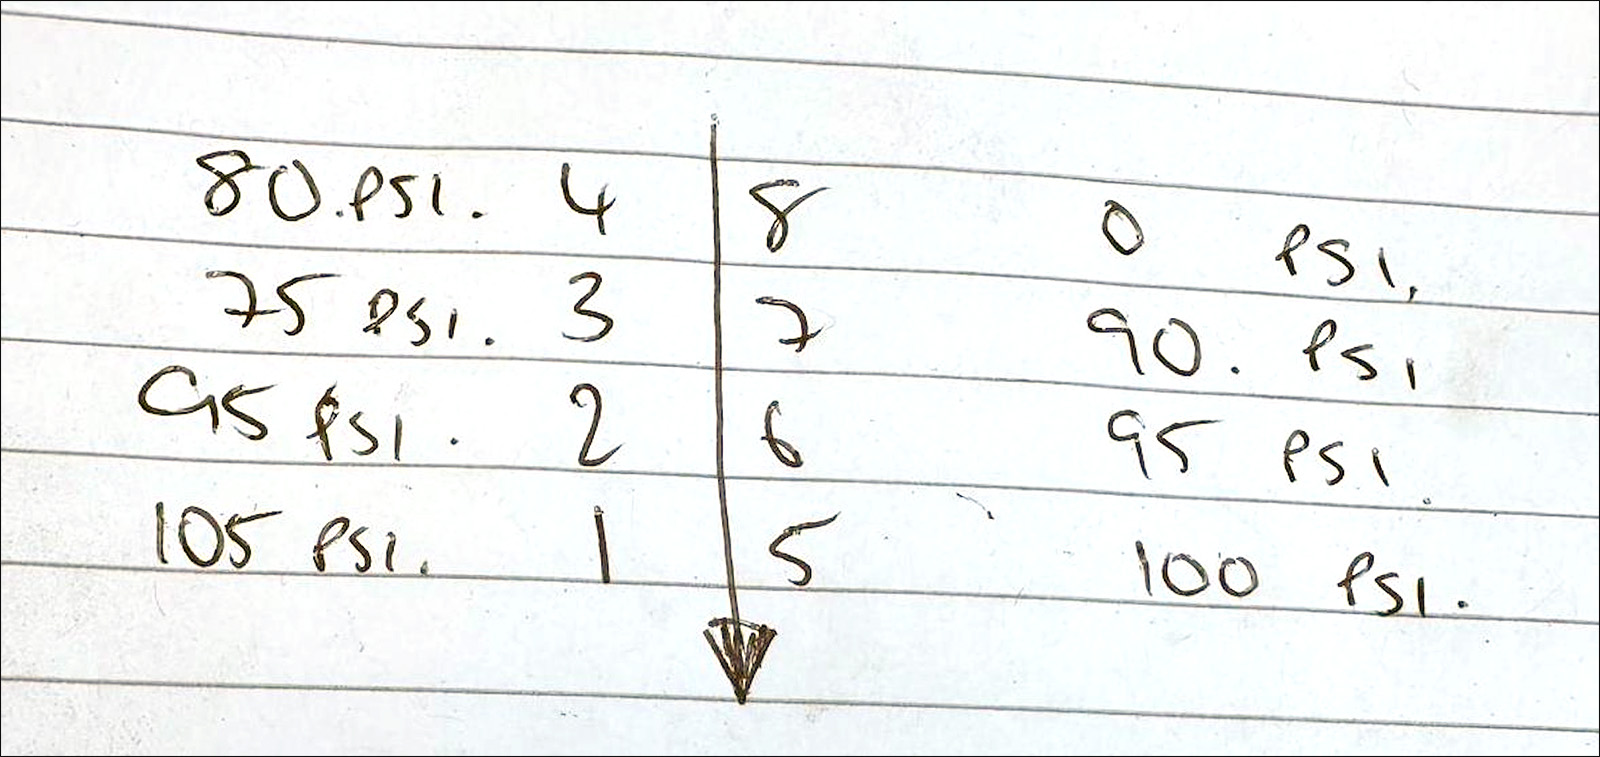 80.PSI. 4 8 0 PSI.
75 PSI. 3 7 90. PSI
95 PSI. 2 6 95 PSI.
105 PSI. 1 5 100 PSI.